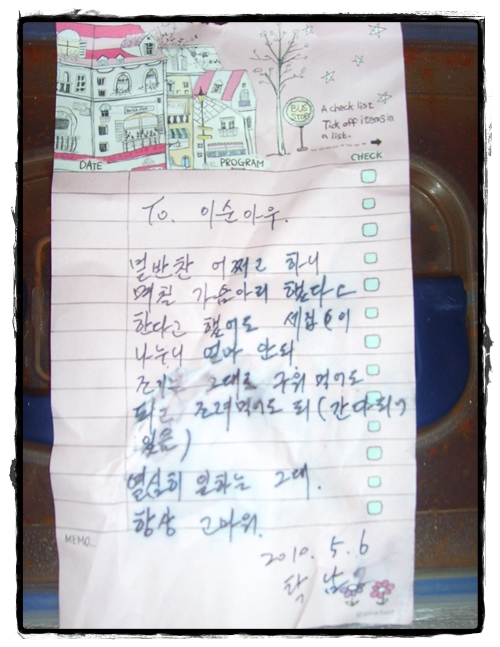 BUS STOP
A check list
Tick off items in
a list.
DATE
PROGRAM
CHECK
To. 이순아우.
멸반찬 어쩌고 하니
며칠 가슴아리 했다는
한다고 했어도 세집이
나누니 얼마 안되
조기는 그대로 구워먹어도
되고 조려먹어도 되 (간다되어
있음)
열심히 일하는 그대.
항상 고마워.
MEMO..
2010. 5. 6